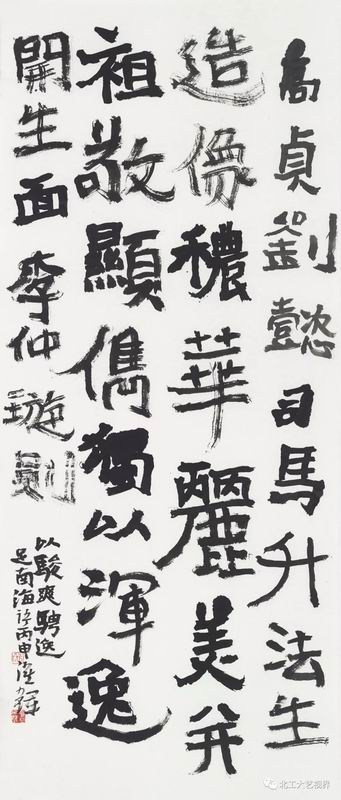 高貞劉懿司馬升法生
造像穠華麗美并
祖敬顯儁獨以渾逸
開生面李仲璇則
以駿爽騁逸
足南海語丙申
北工大艺视界